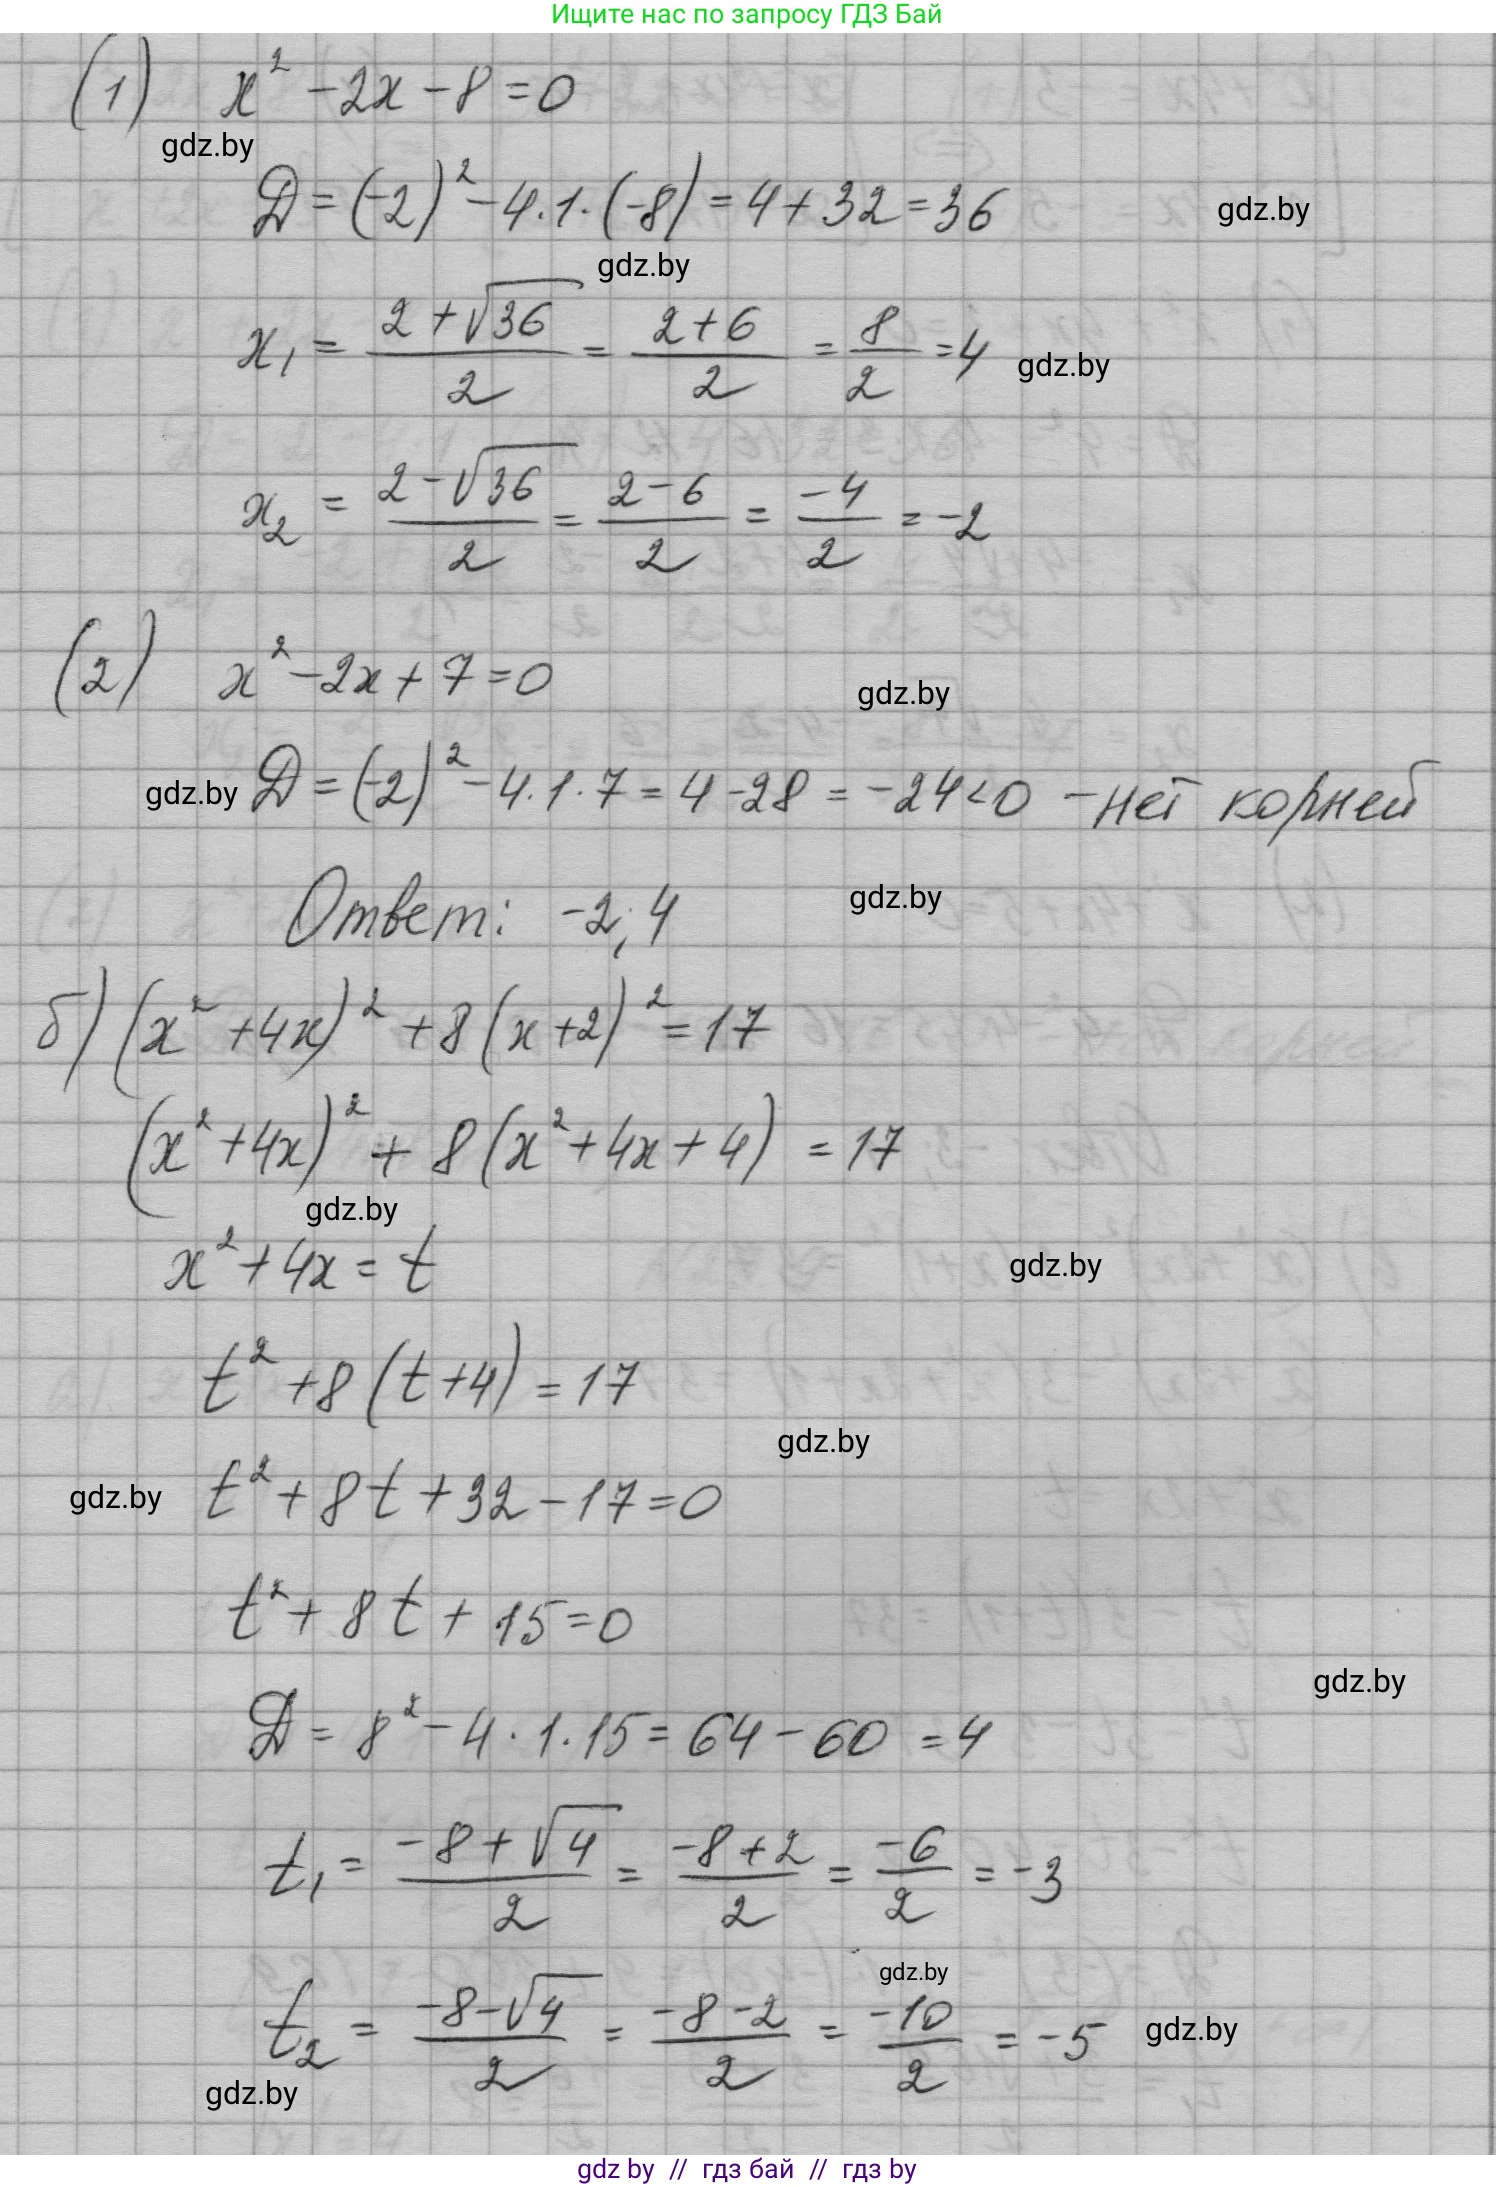 Ищите нас по запросу ГДЗ Бай
(1) x² - 2x - 8 = 0
gdz.by
D = (-2)² - 4·1·(-8) = 4 + 32 = 36
gdz.by
gdz.by
x₁ = (2 + √36)/2 = (2 + 6)/2 = 8/2 = 4
gdz.by
x₂ = (2 - √36)/2 = (2 - 6)/2 = -4/2 = -2
(2) x² - 2x + 7 = 0
gdz.by
gdz.by
D = (-2)² - 4·1·7 = 4 - 28 = -24 < 0 - нет корней
Ответ: -2; 4
gdz.by
б) (x² + 4x)² + 8(x + 2)² = 17
(x² + 4x)² + 8(x² + 4x + 4) = 17
gdz.by
x² + 4x = t
gdz.by
t² + 8(t + 4) = 17
gdz.by
gdz.by
t² + 8t + 32 - 17 = 0
t² + 8t + 15 = 0
gdz.by
D = 8² - 4·1·15 = 64 - 60 = 4
t₁ = (-8 + √4)/2 = (-8 + 2)/2 = -6/2 = -3
gdz.by
t₂ = (-8 - √4)/2 = (-8 - 2)/2 = -10/2 = -5
gdz.by
gdz.by
gdz by // гдз бай // гдз by